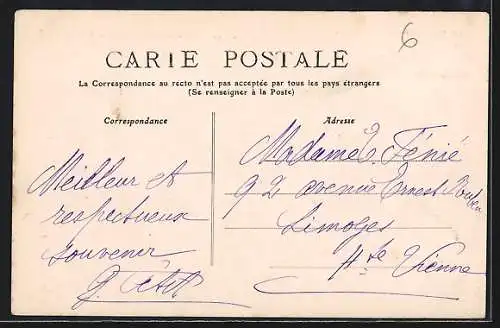 6
CARTE POSTALE
La Correspondance au recto n'est pas acceptée par tous les pays étrangers
(Se renseigner à la Poste)
Correspondance
Adresse
Meilleur et
respectueux
souvenir
G. Petit
Madame E. Fénié
92 avenue Ernest Ruben
Limoges
Hte Vienne